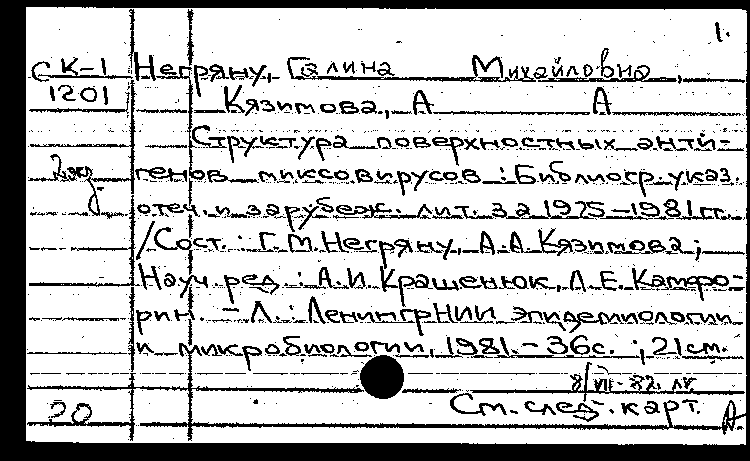 1.
СК-1 Негряну, Галина Михайловна,
1201 Кязимова, А А
Структура поверхностных анти-
генов миксовирусов : Библиогр. указ.
отеч. и зарубеж. лит. за 1975-1981 гг.
/Сост.: Г.М. Негряну, А.А. Кязимова;
Науч. ред.: А.И Крашенюк, Л.Е. Камфо-
рин. - Л.: ЛенингрНИИ эпидемиологии
и микробиологии, 1981. - 36с. ; 21см.
8/VII-82.
20 См. след. карт.